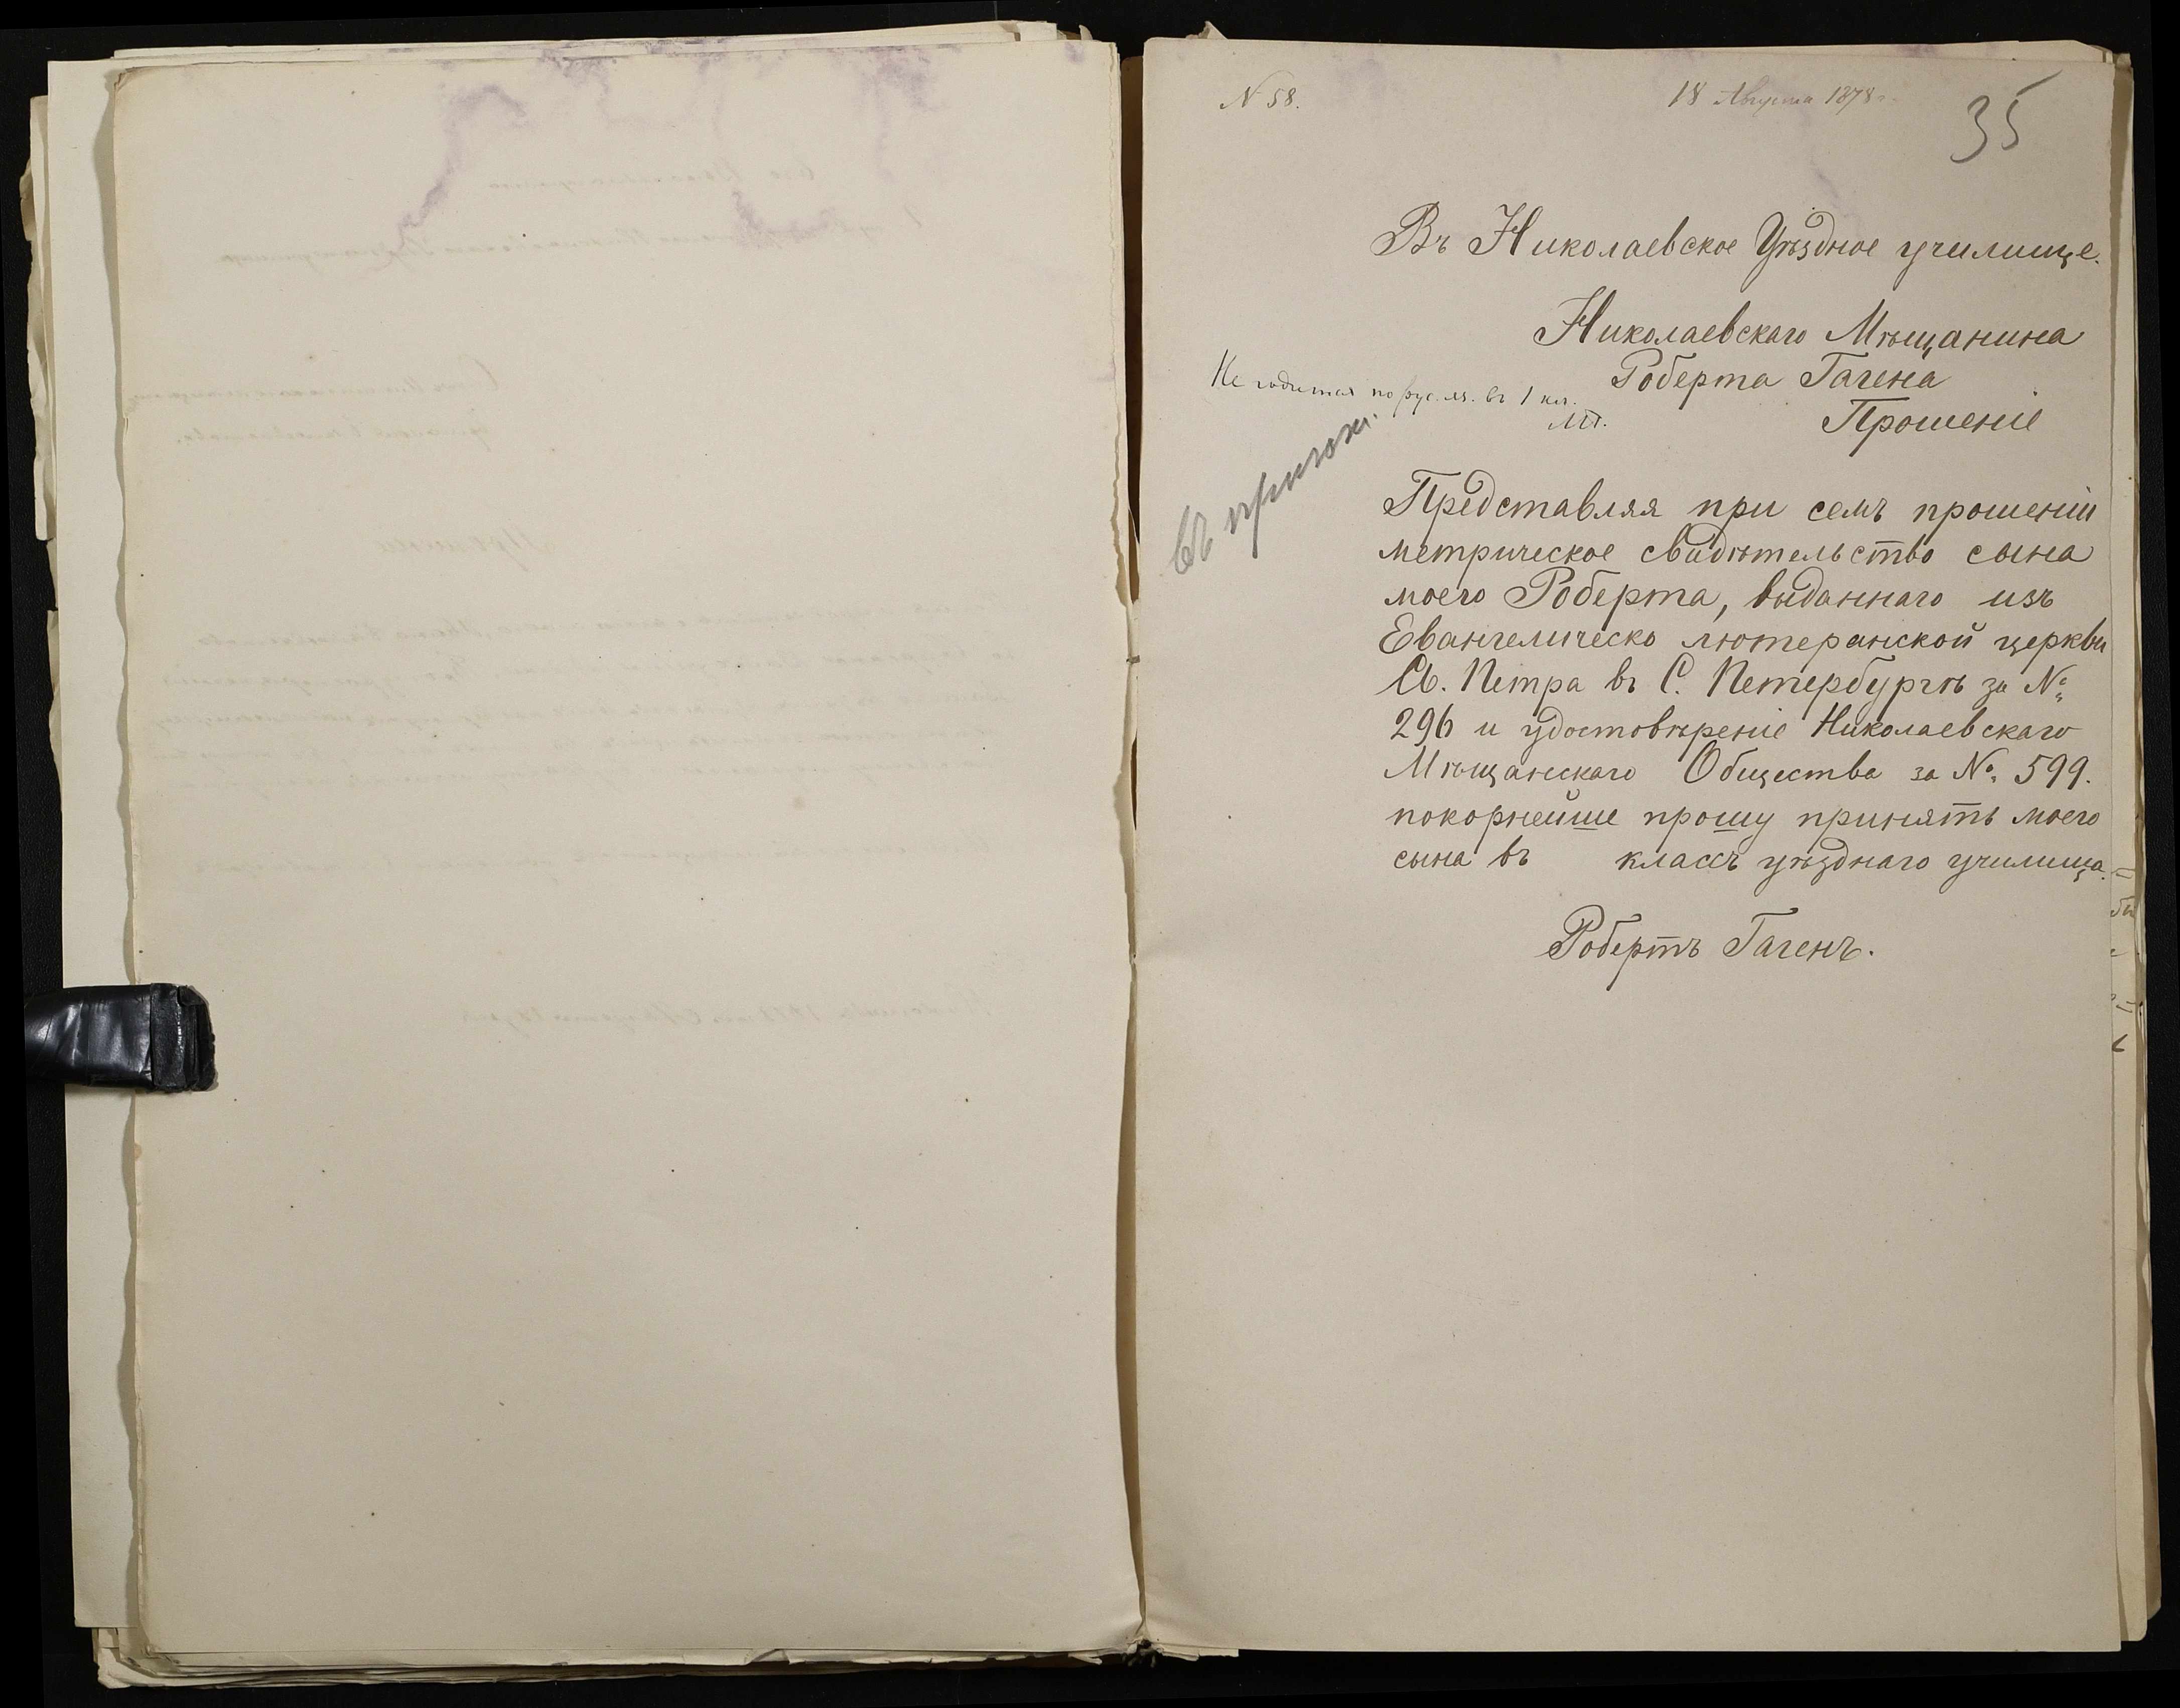 N 58.
18 Августа 1878 г.
35
Въ Николаевское Уѣздное училище.
Николаевскаго Мѣщанина
Роберта Гагена
Прошеніе
Не годится по рус. яз. въ 1 кл.
въ пригот.
Представляя при семъ прошеніи
метрическое свидѣтельство сына
моего Роберта, выданнаго изъ
Евангелическо лютеранской церкви
Св. Петра въ С. Петербургѣ за №
296 и удостовѣреніе Николаевскаго
Мѣщанскаго Общества за № 599.
покорнейше прошу принять моего
сына въ классъ уѣзднаго училища.
Робертъ Гагенъ.